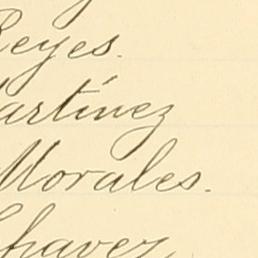 Reyes.
Martínez
Morales.
Chavez